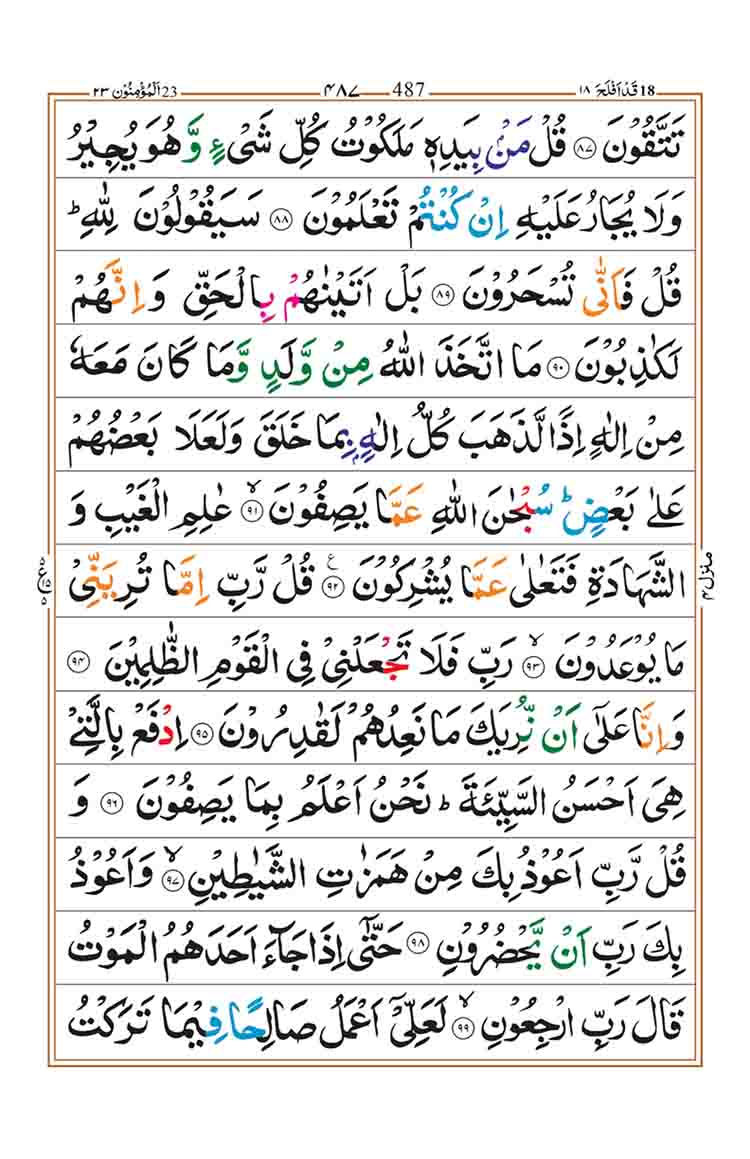 18 قَدْ اَفْلَحَ ۱۸ 487 ۴۸۷ 23 اَلْمُؤْمِنُوْن ۲۳
تَتَّقُوْنَ ۝۸۷ قُلْ مَنْۢ بِيَدِهٖ مَلَكُوْتُ كُلِّ شَيْءٍ وَّ هُوَ يُجِيْرُ
وَلَا يُجَارُ عَلَيْهِ اِنْ كُنْتُمْ تَعْلَمُوْنَ ۝۸۸ سَيَقُوْلُوْنَ لِلّٰهِ ؕ
قُلْ فَاَنّٰى تُسْحَرُوْنَ ۝۸۹ بَلْ اَتَيْنٰهُمْ بِالْحَقِّ وَ اِنَّهُمْ
لَكٰذِبُوْنَ ۝۹۰ مَا اتَّخَذَ اللّٰهُ مِنْ وَّلَدٍ وَّمَا كَانَ مَعَهٗ
مِنْ اِلٰهٍ اِذًا لَّذَهَبَ كُلُّ اِلٰهٍۭ بِمَا خَلَقَ وَلَعَلَا بَعْضُهُمْ
عَلٰى بَعْضٍ ؕ سُبْحٰنَ اللّٰهِ عَمَّا يَصِفُوْنَ ۙ۝۹۱ عٰلِمِ الْغَيْبِ وَ
الشَّهَادَةِ فَتَعٰلٰى عَمَّا يُشْرِكُوْنَ ۝۹۲ ع قُلْ رَّبِّ اِمَّا تُرِيَنِّيْ
مَا يُوْعَدُوْنَ ۙ۝۹۳ رَبِّ فَلَا تَجْعَلْنِيْ فِي الْقَوْمِ الظّٰلِمِيْنَ ۝۹۴
وَ اِنَّا عَلٰٓى اَنْ نُّرِيَكَ مَا نَعِدُهُمْ لَقٰدِرُوْنَ ۝۹۵ اِدْفَعْ بِالَّتِيْ
هِيَ اَحْسَنُ السَّيِّئَةَ ؕ نَحْنُ اَعْلَمُ بِمَا يَصِفُوْنَ ۝۹۶ وَ
قُلْ رَّبِّ اَعُوْذُ بِكَ مِنْ هَمَزٰتِ الشَّيٰطِيْنِ ۙ۝۹۷ وَ اَعُوْذُ
بِكَ رَبِّ اَنْ يَّحْضُرُوْنِ ۝۹۸ حَتّٰٓى اِذَا جَآءَ اَحَدَهُمُ الْمَوْتُ
قَالَ رَبِّ ارْجِعُوْنِ ۙ۝۹۹ لَعَلِّيْٓ اَعْمَلُ صَالِحًا فِيْمَا تَرَكْتُ
منزل ۴